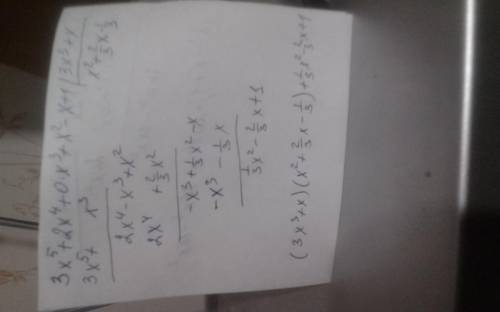 3x⁵+2x⁴+0x³+x²-x+1 | 3x³+x
3x⁵+ x³
x²+⅔x-⅓
2x⁴-x³+x²
2x⁴ +⅔x²
-x³+⅓x²-x
-x³ -⅓x
⅓x²-⅔x+1
(3x³+x)(x²+⅔x-⅓)+⅓x²-⅔x+1